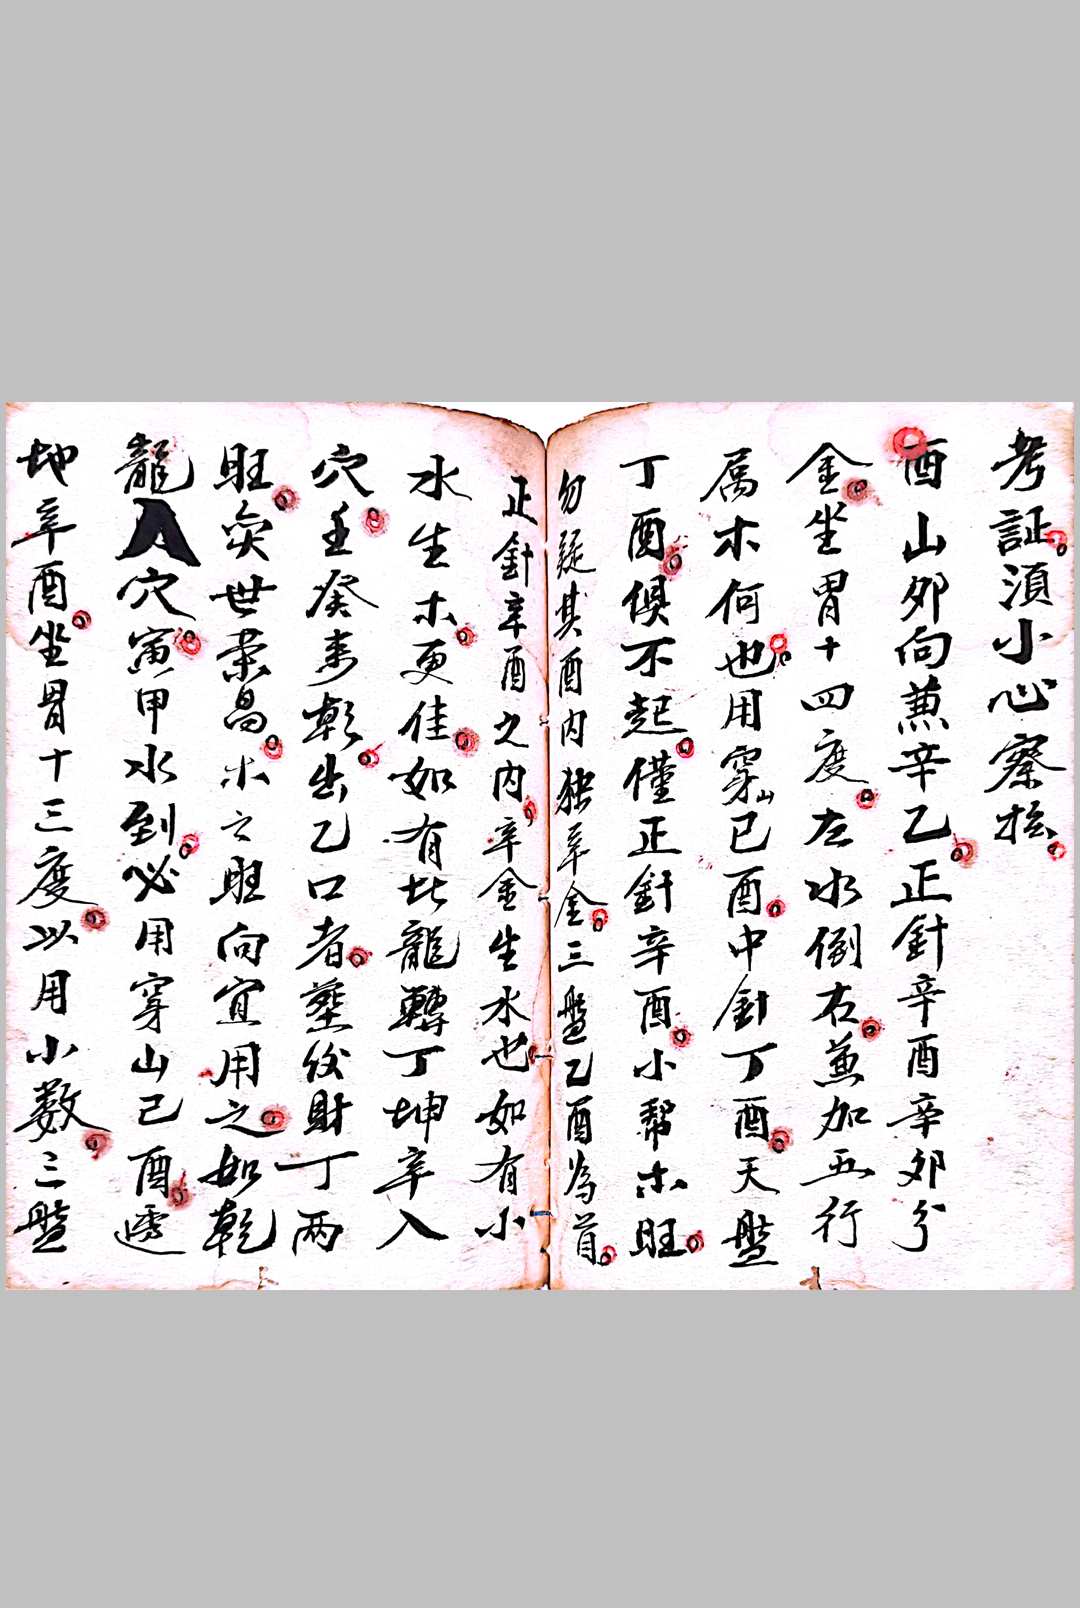 考証。須小心察拡。
酉山夘向蒽兼辛乙。正針辛酉辛夘分
金。坐胃十四度。左水倒右。兼加五行
属木何也。用穿山己酉。中針丁酉。天盤
丁酉。俱不起。僅正針辛酉。小幇木旺。
勿疑其酉内独辛金。三盤乙酉為首。
正針辛酉之内。辛金生水也。如有小
水生木。更佳。如有此龍轉丁坤辛入
穴。壬癸来乾。出乙口者。塟後財丁两
旺。奕世荣昌。木之旺向宜用之。如乾
龍入穴。寅甲水到。必用穿山己酉。透
地辛酉。坐胃十三度。以用小数。三盤